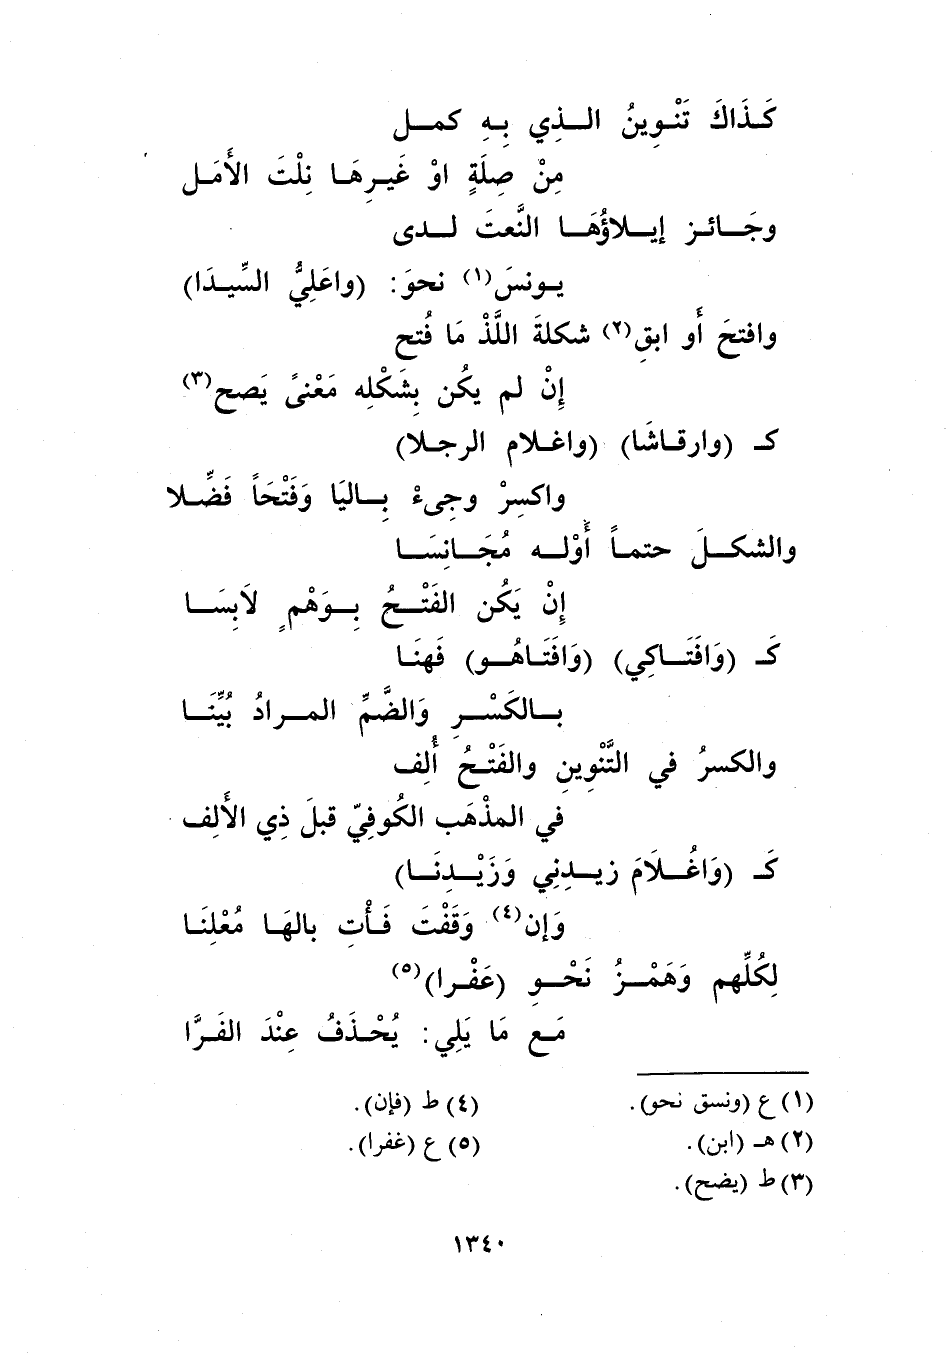 كَذَاكَ تَنْوِينُ الذِي بِهِ كمل
مِنْ صِلَةٍ اوْ غَيرِهَا نِلْتَ الأَمَل
وجَائز إيلاؤُهَا النَّعتَ لدى
يونسَ(١) نحوَ: (واعَلِيُّ السِّيدَا)
وافتحَ أَو ابقِ(٢) شكلةَ اللَّذْ مَا فُتح
إِنْ لم يكُن بِشَكْلِه مَعْنىً يَصح(٣)
كـ (وارقاشَا) (واغلام الرجلا)
واكسِرْ وجِىءْ بِاليَا وَفَتْحَاً فَضِّلا
والشكلَ حتماً أَوْله مُجَانِسَا
إِنْ يَكُن الفَتْحُ بِوَهْمٍ لاَبِسَا
كَـ (وَافَتَاكِي) (وَافَتَاهُو) فَهنَا
بالكَسْرِ وَالضَّمِّ المرادُ بُيِّنَا
والكسرُ في التَّنْوِينِ والفَتْحُ أُلِف
في المذْهَبِ الكُوفِيّ قبلَ ذِي الأَلِف
كَـ (وَاغُلاَمَ زيدِنِي وَزَيْدِنَا)
وَإن(٤) وَقَفْتَ فَأْتِ بالهَا مُعْلِنَا
لِكُلِّهم وَهَمْزُ نَحْوِ (عَفْرا)(٥)
مَع مَا يَلِي: يُحْذَفُ عِنْدَ الفَرَّا
(١) ع (ونسق نحو).
(٢) هـ (ابن).
(٣) ط (يضح).
(٤) ط (فإن).
(٥) ع (غفرا).
١٣٤٠